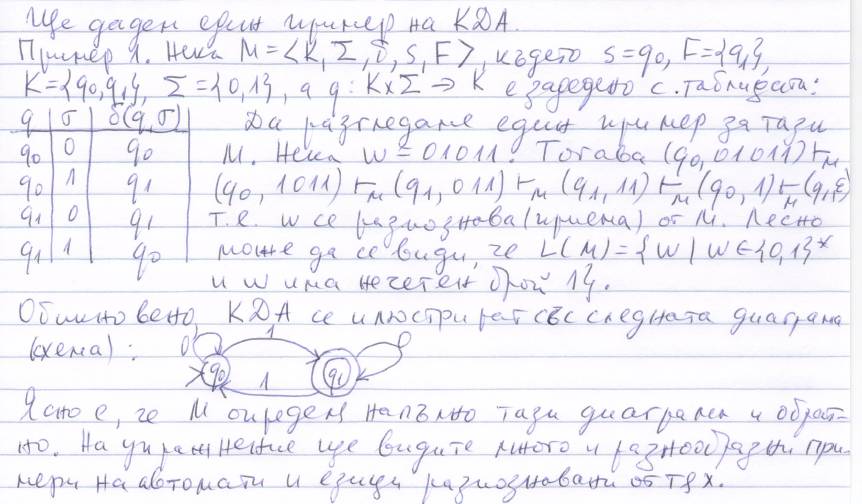 Ще дадем един пример на КДА.
Пример 1. Нека M=<K, Σ, δ, s, F>, където s=q0, F={q1},
K={q0,q1}, Σ={0,1}, а q: K×Σ → K е зададено с таблицата:
q | σ | δ(q,σ) Да разгледаме един пример за тази
q0 | 0 | q0 M. Нека w=01011. Тогава (q0,01011)⊢M
q0 | 1 | q1 (q0,1011)⊢M(q1,011)⊢M(q1,11)⊢M(q0,1)⊢M(q1,ε)
q1 | 0 | q1 т.е. w се разпознава (приема) от M. Лесно
q1 | 1 | q0 може да се види, че L(M)={w | w∈{0,1}*
и w има нечетен брой 1}.
Обикновено КДА се илюстрират със следната диаграма
(схема):
0 1 0
q0 q1
1
Ясно е, че M определя напълно тази диаграма и обрат-
но. На упражнение ще видите много и разнообразни при-
мери на автомати и езици разпознавани от тях.